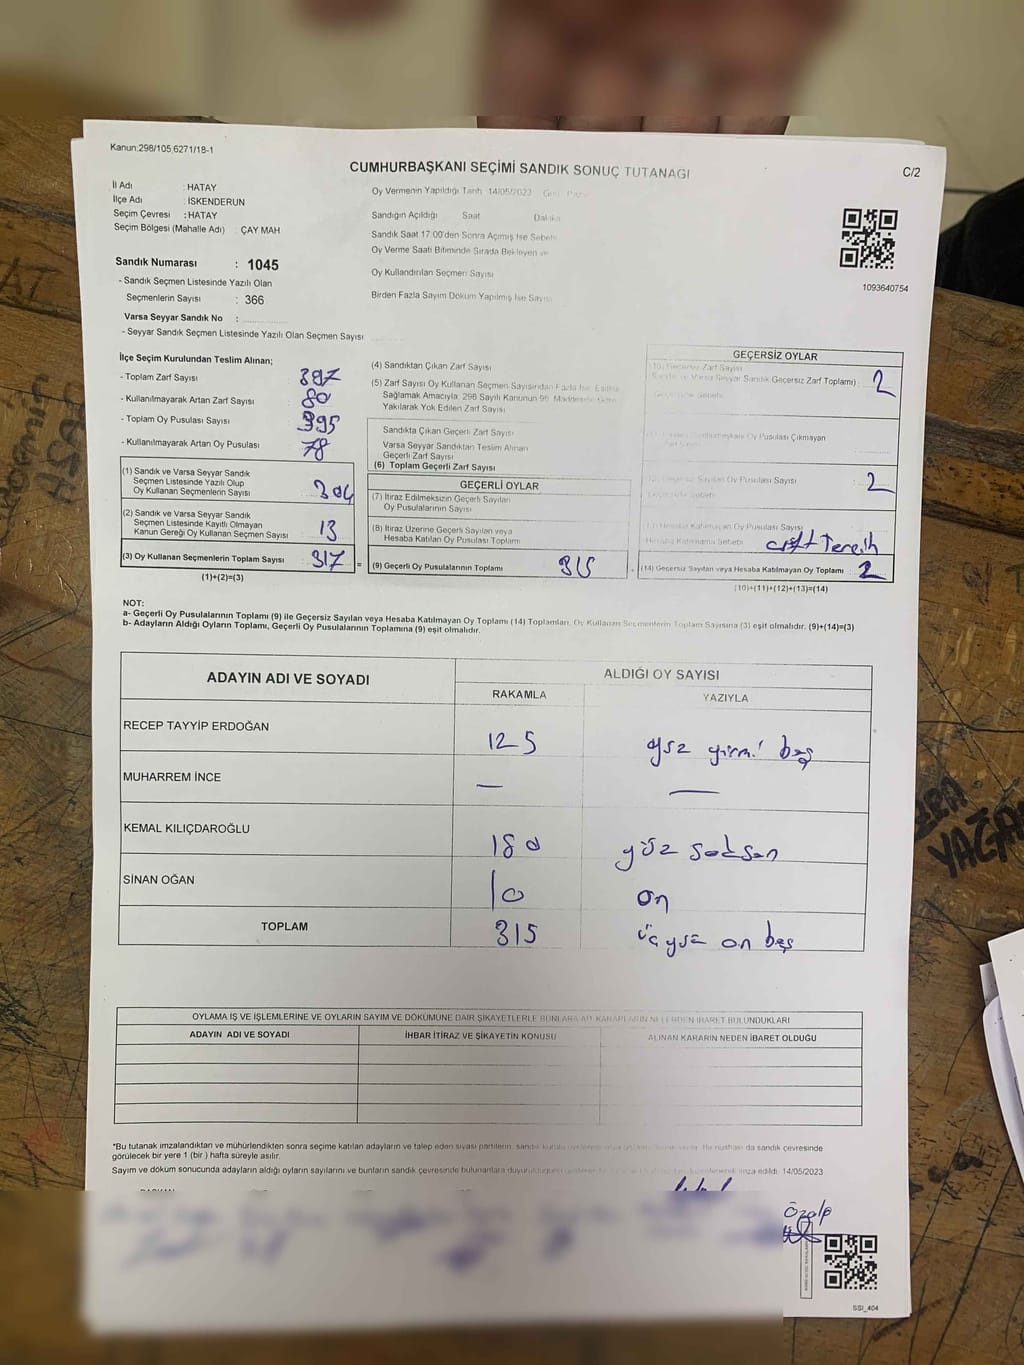 Kanun:298/105 6271/18-1
CUMHURBAŞKANI SEÇİMİ SANDIK SONUÇ TUTANAĞI
C/2
İl Adı : HATAY
İlçe Adı : İSKENDERUN
Seçim Çevresi : HATAY
Seçim Bölgesi (Mahalle Adı) : ÇAY MAH
Oy Vermenin Yapıldığı Tarih 14/05/2023
Sandığın Açıldığı Saat Dakika
Sandık Saat 17:00'den Sonra Açılmış İse Sebebi
Oy Verme Saati Bitiminde Sırada Bekleyen ve
Oy Kullandırılan Seçmen Sayısı
Birden Fazla Sayım Döküm Yapılmış İse Sayısı
1093640754
Sandık Numarası : 1045
- Sandık Seçmen Listesinde Yazılı Olan
Seçmenlerin Sayısı : 366
Varsa Seyyar Sandık No :
- Seyyar Sandık Seçmen Listesinde Yazılı Olan Seçmen Sayısı
İlçe Seçim Kurulundan Teslim Alınan;
- Toplam Zarf Sayısı 397
- Kullanılmayarak Artan Zarf Sayısı 80
- Toplam Oy Pusulası Sayısı 395
- Kullanılmayarak Artan Oy Pusulası 78
(1) Sandık ve Varsa Seyyar Sandık
Seçmen Listesinde Yazılı Olup
Oy Kullanan Seçmenlerin Sayısı 304
(2) Sandık ve Varsa Seyyar Sandık
Seçmen Listesinde Kayıtlı Olmayan
Kanun Gereği Oy Kullanan Seçmen Sayısı 13
(3) Oy Kullanan Seçmenlerin Toplam Sayısı : 317 =
(1)+(2)=(3)
(4) Sandıktan Çıkan Zarf Sayısı
(5) Zarf Sayısı Oy Kullanan Seçmen Sayısından Fazla İse Eşitlik
Sağlamak Amacıyla 298 Sayılı Kanunun 98. Maddesine Göre
Yakılarak Yok Edilen Zarf Sayısı
Sandıkta Çıkan Geçerli Zarf Sayısı
Varsa Seyyar Sandıktan Teslim Alınan
Geçerli Zarf Sayısı
(6) Toplam Geçerli Zarf Sayısı
GEÇERLİ OYLAR
(7) İtiraz Edilmeksizin Geçerli Sayılan
Oy Pusulalarının Sayısı
(8) İtiraz Üzerine Geçerli Sayılan veya
Hesaba Katılan Oy Pusulası Toplamı
(9) Geçerli Oy Pusulalarının Toplamı 315
GEÇERSİZ OYLAR
(10) Geçersiz Zarf Sayısı
(Sandık ve Varsa Seyyar Sandık Geçersiz Zarf Toplamı) : 2
Oy Pusulası Çıkmayan
Oy Pusulası Sayısı : 2
Hesaba Katılmayan Oy Pusulası Sayısı
Hesaba Katılmama Sebebi çift Tercih
(14) Geçersiz Sayılan veya Hesaba Katılmayan Oy Toplamı : 2
(10)+(11)+(12)+(13)=(14)
NOT:
a- Geçerli Oy Pusulalarının Toplamı (9) ile Geçersiz Sayılan veya Hesaba Katılmayan Oy Toplamı (14) Toplamları, Oy Kullanan Seçmenlerin Toplam Sayısına (3) eşit olmalıdır. (9)+(14)=(3)
b- Adayların Aldığı Oyların Toplamı, Geçerli Oy Pusulalarının Toplamına (9) eşit olmalıdır.
ADAYIN ADI VE SOYADI
ALDIĞI OY SAYISI
RAKAMLA YAZIYLA
RECEP TAYYİP ERDOĞAN 125 yüz yirmi beş
MUHARREM İNCE — —
KEMAL KILIÇDAROĞLU 180 yüz seksen
SİNAN OĞAN 10 on
TOPLAM 315 üçyüz on beş
OYLAMA İŞ VE İŞLEMLERİNE VE OYLARIN SAYIM VE DÖKÜMÜNE DAİR ŞİKAYETLERLE BUNLARA AİT KARARLARIN NELERDEN İBARET BULUNDUKLARI
ADAYIN ADI VE SOYADI İHBAR İTİRAZ VE ŞİKAYETİN KONUSU ALINAN KARARIN NEDEN İBARET OLDUĞU
*Bu tutanak imzalandıktan ve mühürlendikten sonra seçime katılan adayların ve talep eden siyasi partilerin sandık kurulu da sandık çevresinde
görülecek bir yere 1 (bir ) hafta süreyle asılır.
Sayım ve döküm sonucunda adayların aldığı oyların sayılarını ve bunların sandık çevresinde bulunanlara duyurulduğunu imza edildi. 14/05/2023
Özalp
SSI_404